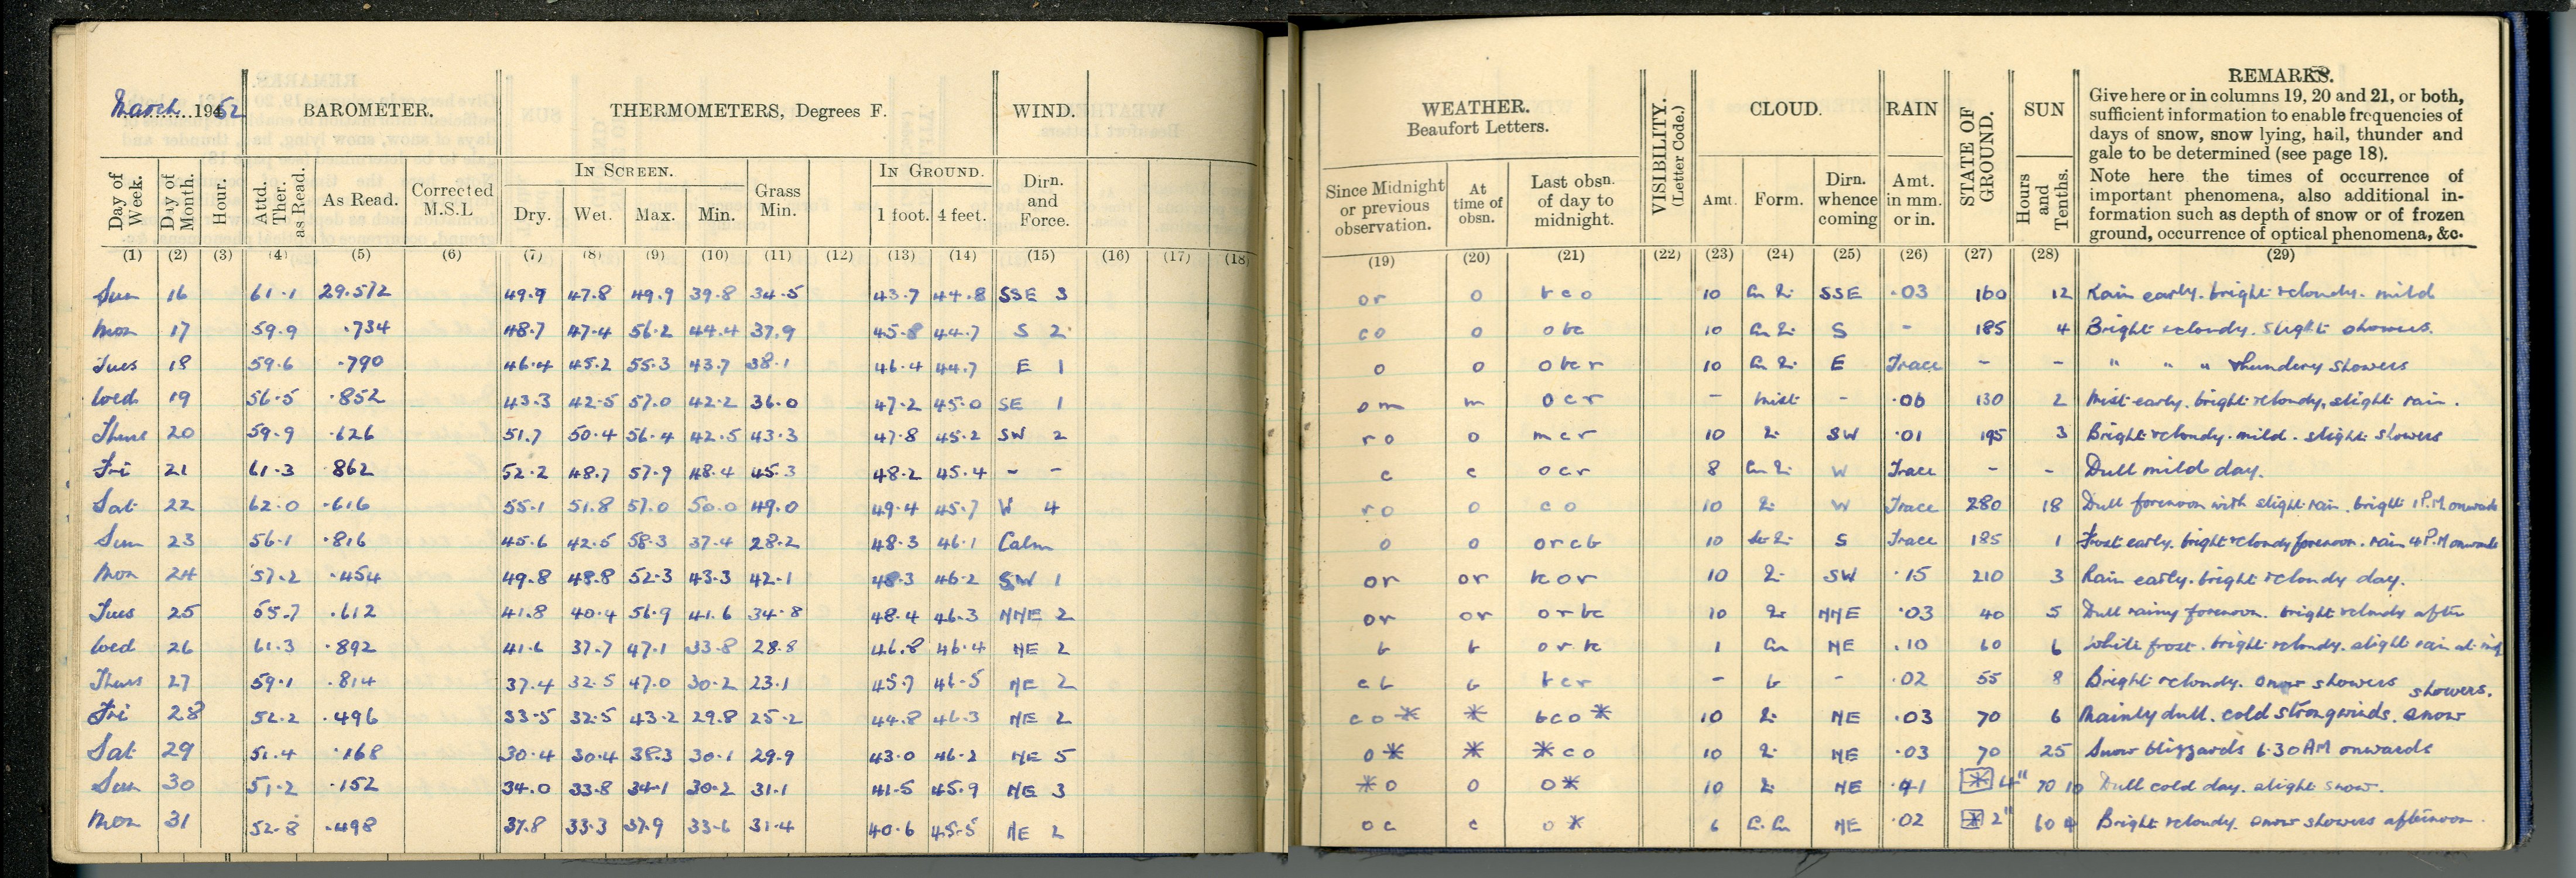 March 1952
BAROMETER.
THERMOMETERS, Degrees F.
WIND.
Day of Week.
Day of Month.
Hour.
Attd. Ther. as Read.
As Read.
Corrected M.S.L
IN SCREEN.
Dry. Wet. Max. Min.
Grass Min.
IN GROUND.
1 foot. 4 feet.
Dirn. and Force.
(1) (2) (3) (4) (5) (6) (7) (8) (9) (10) (11) (12) (13) (14) (15) (16) (17) (18)
Sun 16 61.1 29.572 49.9 47.8 49.9 39.8 34.5 43.7 44.8 SSE 3
Mon 17 59.9 .734 48.7 47.4 56.2 44.4 37.9 45.8 44.7 S 2
Tues 18 59.6 .790 46.4 45.2 55.3 43.7 38.1 46.4 44.7 E 1
Wed 19 56.5 .852 43.3 42.5 57.0 42.2 36.0 47.2 45.0 SE 1
Thurs 20 59.9 .626 51.7 50.4 56.4 42.5 43.3 47.8 45.2 SW 2
Fri 21 61.3 .862 52.2 48.7 57.9 48.4 45.3 48.2 45.4 - -
Sat 22 62.0 .616 55.1 51.8 57.0 50.0 49.0 49.4 45.7 W 4
Sun 23 56.1 .816 45.6 42.5 58.3 37.4 28.2 48.3 46.1 Calm
Mon 24 57.2 .454 49.8 48.8 52.3 43.3 42.1 48.3 46.2 SW 1
Tues 25 55.7 .612 41.8 40.4 56.9 41.6 34.8 48.4 46.3 NNE 2
Wed 26 61.3 .892 41.6 37.7 47.1 33.8 28.8 46.8 46.4 NE 2
Thurs 27 59.1 .814 37.4 32.5 47.0 30.2 23.1 45.7 46.5 NE 2
Fri 28 52.2 .496 33.5 32.5 43.2 29.8 25.2 44.8 46.3 NE 2
Sat 29 51.4 .168 30.4 30.4 38.3 30.1 29.9 43.0 46.2 NE 5
Sun 30 51.2 .152 34.0 33.8 34.1 30.2 31.1 41.5 45.9 NE 3
Mon 31 52.8 .498 37.8 33.3 37.9 33.6 31.4 40.6 45.5 NE 2
WEATHER.
Beaufort Letters.
Since Midnight or previous observation.
At time of obsn.
Last obsn. of day to midnight.
VISIBILITY. (Letter Code.)
CLOUD.
Amt. Form. Dirn. whence coming
RAIN
Amt. in mm. or in.
STATE OF GROUND.
SUN
Hours and Tenths.
REMARKS.
Give here or in columns 19, 20 and 21, or both,
sufficient information to enable frequencies of
days of snow, snow lying, hail, thunder and
gale to be determined (see page 18).
Note here the times of occurrence of
important phenomena, also additional in-
formation such as depth of snow or of frozen
ground, occurrence of optical phenomena, &c.
(19) (20) (21) (22) (23) (24) (25) (26) (27) (28) (29)
or o bco 10 SSE .03 160 12 Rain early. bright & cloudy. mild
co o obc 10 S - 185 4 Bright & cloudy. slight showers.
o o obcr 10 E Trace - - " " " thundery showers
om m ocr - mist - .06 130 2 Mist early. bright & cloudy, slight rain.
ro o mcr 10 SW .01 195 3 Bright & cloudy. mild. slight showers
c c ocr 8 W Trace - - Dull mild day.
ro o co 10 W Trace 280 18 Dull forenoon with slight rain. bright 1 P.M. onwards
o o orcb 10 S Trace 185 1 Frost early. bright & cloudy forenoon. rain 4 P.M onwards
or or bcor 10 SW .15 210 3 Rain early. bright & cloudy day.
or or orbc 10 NNE .03 40 5 Dull rainy forenoon. bright & cloudy after
b b orbc 1 Cu NE .10 60 6 White frost. bright & cloudy. slight rain at
cb b bcr - b - .02 55 8 Bright & cloudy. snow showers
co* * bco* 10 NE .03 70 6 Mainly dull. cold strong winds. snow showers.
o* * *co 10 NE .03 70 25 Snow blizzards 6.30 AM onwards
*o o o* 10 NE .41 * 4" 70 10 Dull cold day. slight snow.
oc c o* 6 NE .02 * 2" 60 4 Bright & cloudy. snow showers afternoon.